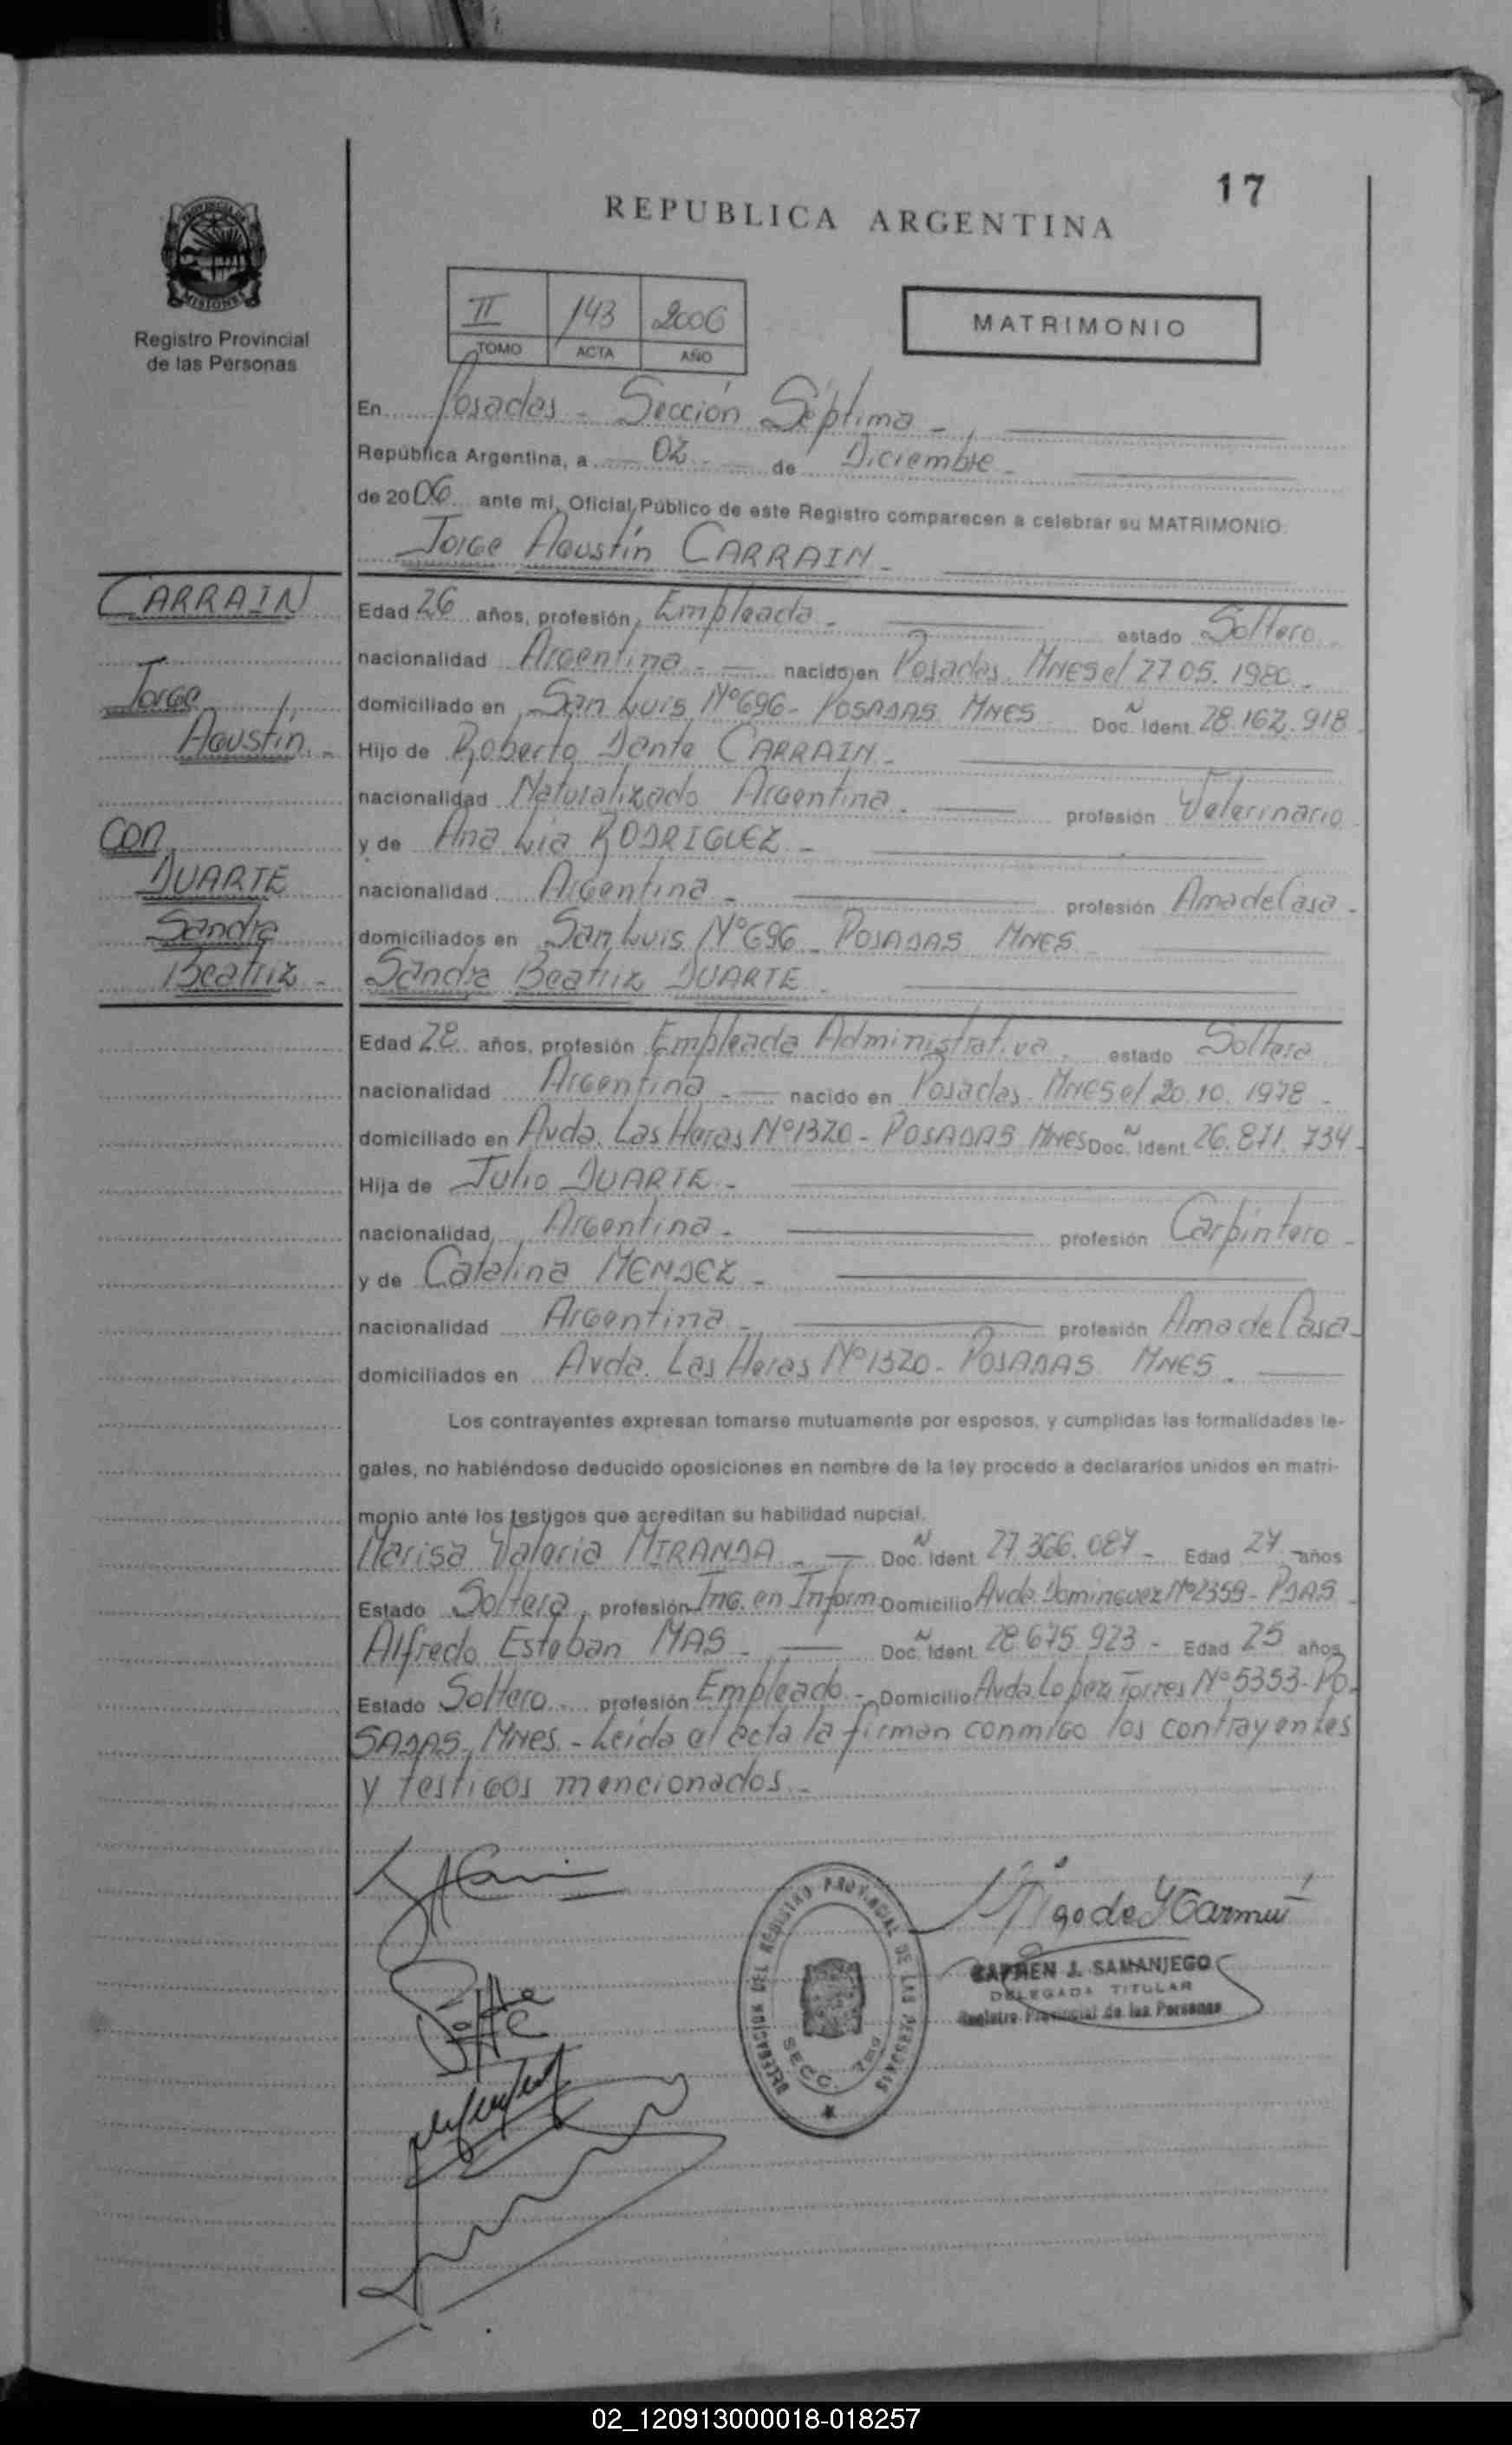 17
REPUBLICA ARGENTINA
PROVINCIA DE
MISIONES
Registro Provincial
de las Personas
II 143 2006
TOMO ACTA AÑO
MATRIMONIO
En Posadas - Sección Séptima -
República Argentina, a 02 de Diciembre -
de 2006 ante mi, Oficial Público de este Registro comparecen a celebrar su MATRIMONIO
Jorge Agustín CARRAIN -
CARRAIN
Jorge
Agustín. -
con
DUARTE
Sandra
Beatriz -
Edad 26 años, profesión Empleado - estado Soltero
nacionalidad Argentina - nacido en Posadas Mnes el 27.05.1980 -
domiciliado en San Luis Nº 696 - POSADAS MNES Doc. Ident 28.162.918
Hijo de Roberto Dante CARRAIN -
nacionalidad Naturalizado Argentina - profesión Veterinario
y de Ana Lia RODRIGUEZ -
nacionalidad Argentina - profesión Ama de Casa -
domiciliados en San Luis Nº 696 - POSADAS MNES
Sandra Beatriz DUARTE -
Edad 28 años, profesión Empleada Administrativa estado Soltera
nacionalidad Argentina - nacido en Posadas - Mnes el 20.10.1978 -
domiciliado en Avda. Las Heras Nº 1320 - POSADAS MNES Doc. Ident 26.871.734 -
Hija de Julio DUARTE -
nacionalidad Argentina - profesión Carpintero -
y de Catalina MENDEZ -
nacionalidad Argentina - profesión Ama de Casa -
domiciliados en Avda. Las Heras Nº 1320 - POSADAS MNES -
Los contrayentes expresan tomarse mutuamente por esposos, y cumplidas las formalidades le-
gales, no habiéndose deducido oposiciones en nombre de la ley procedo a declararlos unidos en matri-
monio ante los testigos que acreditan su habilidad nupcial.
Marisa Valeria MIRANDA - Doc. Ident 27.366.087 - Edad 27 años
Estado Soltera, profesión Ing. en Inform Domicilio Avda Dominguez Nº 2359 - PDAS
Alfredo Esteban MAS - Doc. Ident 28.675.923 - Edad 25 años
Estado Soltero profesión Empleado - Domicilio Avda Lopez Torres Nº 5353 - PO-
SADAS, Mnes. - Leida el acta la firman conmigo los contrayentes
y testigos mencionados. -
DELEGACION DEL REGISTRO PROVINCIAL DE LAS PERSONAS
SECC. 7ma
CARMEN J. SAMANJEGO
DELEGADA TITULAR
Registro Provincial de las Personas
02_120913000018-018257